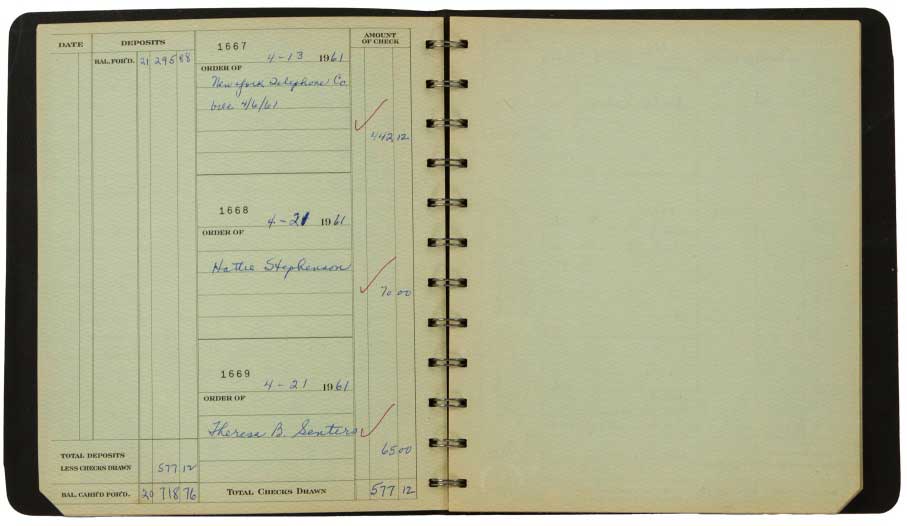 DATE DEPOSITS AMOUNT OF CHECK
BAL. FOR'D. 21 295 88
1667
4-13 1961
ORDER OF
New York Telephone Co.
4/6/61
442 12
1668
4-21 1961
ORDER OF
Hattie Stephenson
70 00
1669
4-21 1961
ORDER OF
Theresa B. Senters
65 00
TOTAL DEPOSITS
LESS CHECKS DRAWN 577 12
BAL. CARR'D FOR'D. 20 718 76 TOTAL CHECKS DRAWN 577 12